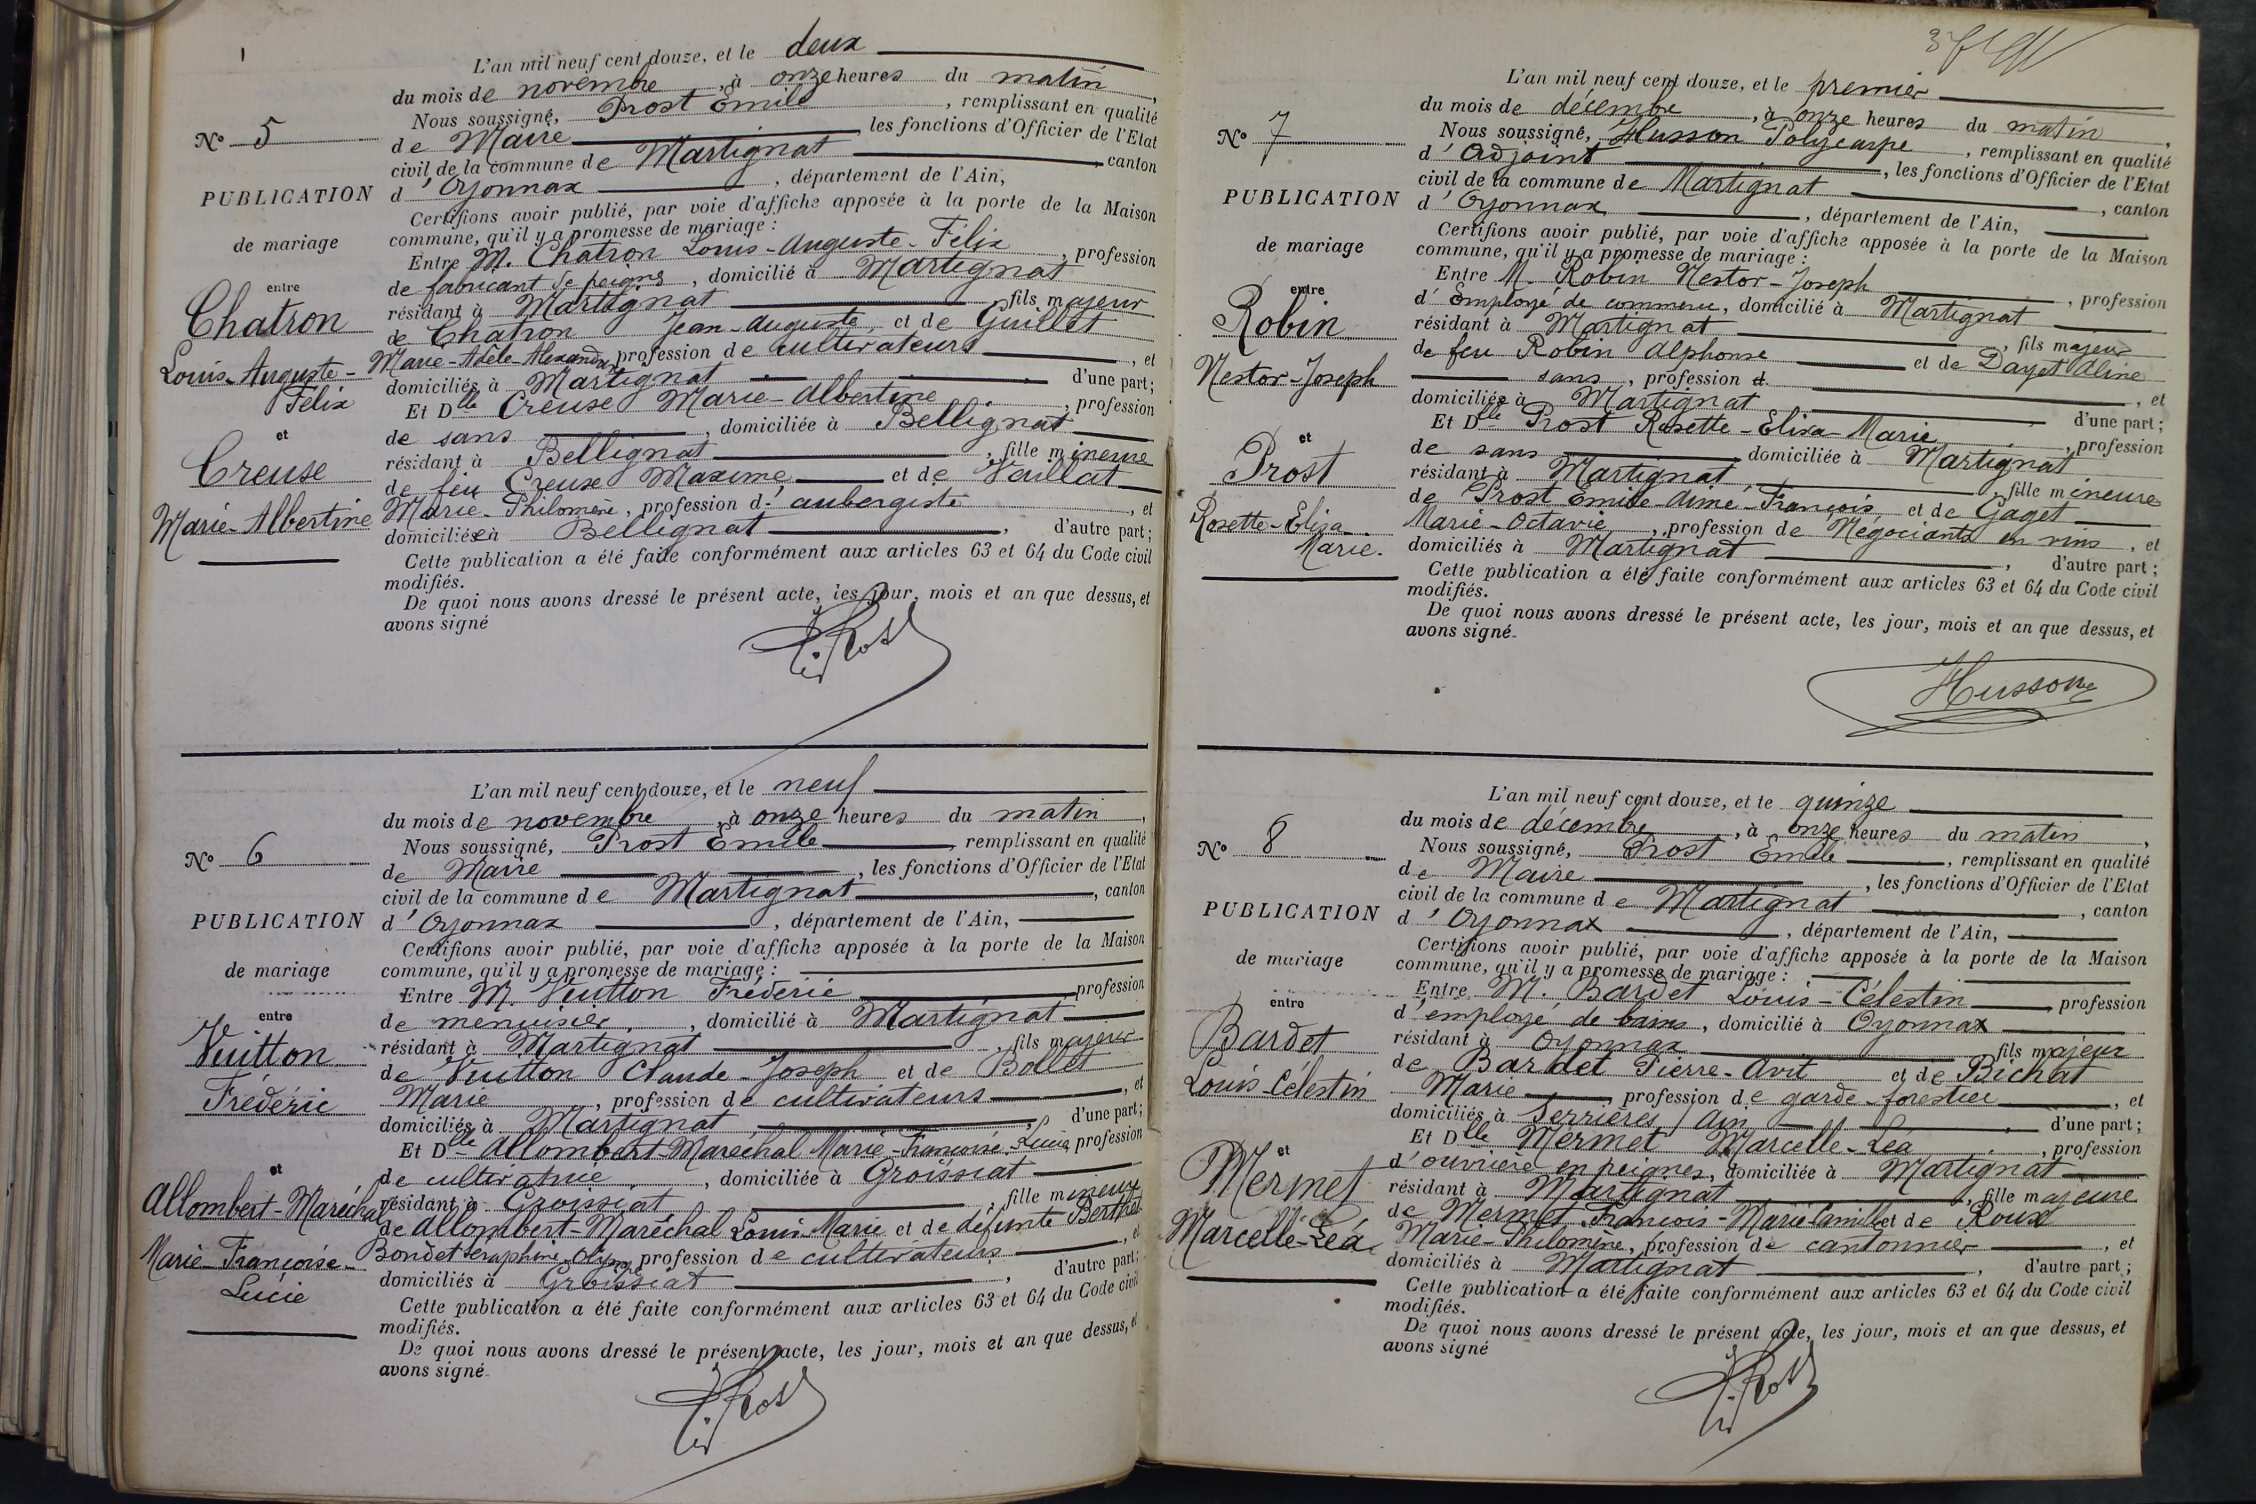 L'an mil neuf cent douze, et le deux
du mois de novembre, à onze heures du matin,
Nous soussigné, Prost Emile, remplissant en qualité
de Maire les fonctions d'Officier de l'Etat
civil de la commune de Martignat canton
d'Oyonnax, département de l'Ain,
Certifions avoir publié, par voie d'affiche apposée à la porte de la Maison
commune, qu'il y a promesse de mariage :
Entre M. Chatron Louis-Auguste-Félix, profession
de fabricant de peignes, domicilié à Martignat
résidant à Martignat fils majeur
de Chatron Jean-Auguste, et de Guillet
Marie-Adèle-Alexandrine profession de cultivateurs, et
domiciliés à Martignat d'une part;
Et Dlle Creuse Marie-Albertine, profession
de sans, domiciliée à Bellignat
résidant à Bellignat, fille mineure
de feu Creuse Maxime et de Vaillat
Marie-Philomène, profession d'aubergiste, et
domiciliée à Bellignat, d'autre part;
Cette publication a été faite conformément aux articles 63 et 64 du Code civil
modifiés.
De quoi nous avons dressé le présent acte, les jour, mois et an que dessus, et
avons signé
E. Prost
No 5
PUBLICATION
de mariage
entre
Chatron
Louis-Auguste-
Félix
et
Creuse
Marie-Albertine
L'an mil neuf cent douze, et le neuf
du mois de novembre, à onze heures du matin,
Nous soussigné, Prost Emile, remplissant en qualité
de Maire, les fonctions d'Officier de l'Etat
civil de la commune de Martignat, canton
d'Oyonnax, département de l'Ain,
Certifions avoir publié, par voie d'affiche apposée à la porte de la Maison
commune, qu'il y a promesse de mariage :
Entre M. Vuitton Frédéric profession
de menuisier, domicilié à Martignat
résidant à Martignat, fils majeur
de Vuitton Claude-Joseph et de Bollet
Marie, profession de cultivateurs, et
domiciliés à Martignat, d'une part;
Et Dlle Allombert-Maréchal Marie-Françoise-Lucie, profession
de cultivatrice, domiciliée à Groissiat
résidant à Groissiat, fille mineure
de Allombert-Maréchal Louis-Marie et de défunte Berthet
Bondet Séraphine-Olympe profession de cultivateurs, et
domiciliés à Groissiat, d'autre part;
Cette publication a été faite conformément aux articles 63 et 64 du Code civil
modifiés.
De quoi nous avons dressé le présent acte, les jour, mois et an que dessus, et
avons signé
E. Prost
No 6
PUBLICATION
de mariage
entre
Vuitton
Frédéric
et
Allombert-Maréchal
Marie-Françoise-
Lucie
L'an mil neuf cent douze, et le premier
du mois de décembre, à onze heures du matin,
Nous soussigné, Husson Polycarpe, remplissant en qualité
d'Adjoint, les fonctions d'Officier de l'Etat
civil de la commune de Martignat, canton
d'Oyonnax, département de l'Ain,
Certifions avoir publié, par voie d'affiche apposée à la porte de la Maison
commune, qu'il y a promesse de mariage :
Entre M. Robin Nestor-Joseph, profession
d'Employé de commerce, domicilié à Martignat
résidant à Martignat, fils majeur
de feu Robin Alphonse et de Dayet Aline
sans, profession d
domiciliée à Martignat, et
d'une part;
Et Dlle Prost Rosette-Elisa-Marie, profession
de sans domiciliée à Martignat
résidant à Martignat, fille mineure
de Prost Emile-Aimé-François, et de Gaget
Marie-Octavie, profession de Négociants en vins, et
domiciliés à Martignat, d'autre part;
Cette publication a été faite conformément aux articles 63 et 64 du Code civil
modifiés.
De quoi nous avons dressé le présent acte, les jour, mois et an que dessus, et
avons signé.
Husson
No 7
PUBLICATION
de mariage
entre
Robin
Nestor-Joseph
et
Prost
Rosette-Elisa
Marie.
L'an mil neuf cent douze, et le quinze
du mois de décembre, à onze heures du matin,
Nous soussigné, Prost Emile, remplissant en qualité
de Maire, les fonctions d'Officier de l'Etat
civil de la commune de Martignat, canton
d'Oyonnax, département de l'Ain,
Certifions avoir publié, par voie d'affiche apposée à la porte de la Maison
commune, qu'il y a promesse de mariage :
Entre M. Bardet Louis-Célestin profession
d'employé de bains, domicilié à Oyonnax
résidant à Oyonnax fils majeur
de Bardet Pierre-Avit et de Bichat
Marie, profession de garde-forestier, et
domiciliés à Serrières, Ain d'une part;
Et Dlle Mermet Marcelle-Léa, profession
d'ouvrière en peignes, domiciliée à Martignat
résidant à Martignat, fille majeure
de Mermet François-Marie-Camille et de Roux
Marie-Philomène, profession de cantonnier, et
domiciliés à Martignat, d'autre part;
Cette publication a été faite conformément aux articles 63 et 64 du Code civil
modifiés.
De quoi nous avons dressé le présent acte, les jour, mois et an que dessus, et
avons signé
E. Prost
No 8
PUBLICATION
de mariage
entre
Bardet
Louis-Célestin
et
Mermet
Marcelle-Léa